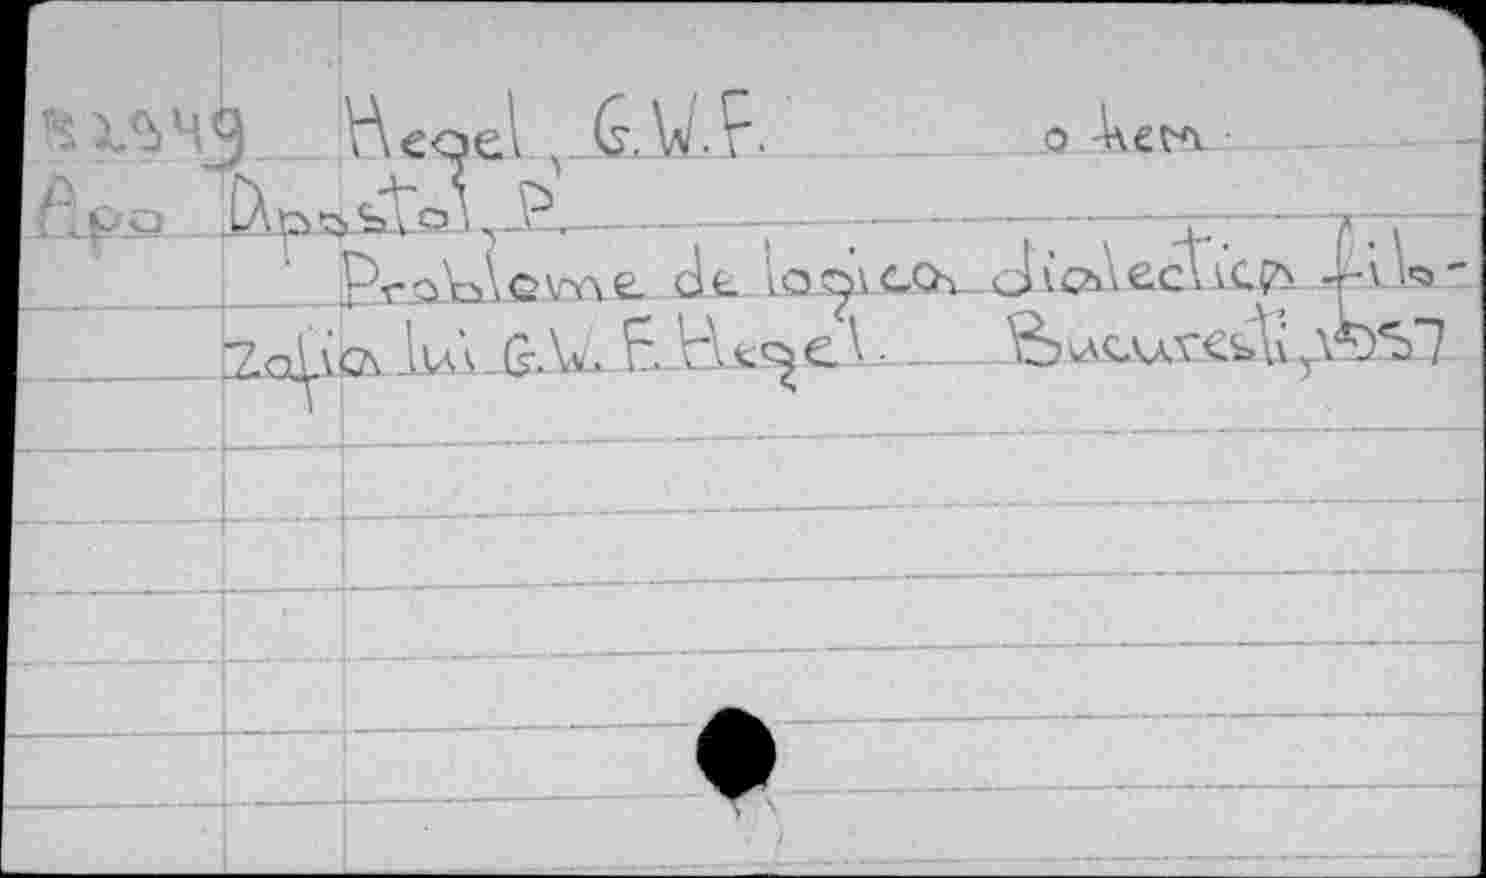 Hegel, G.W.F. о нем
Apo Apostol, P.
Probleme de logica dialectica filo-
zofia lui G.W.F. Hegel. Bucuresti, 1957